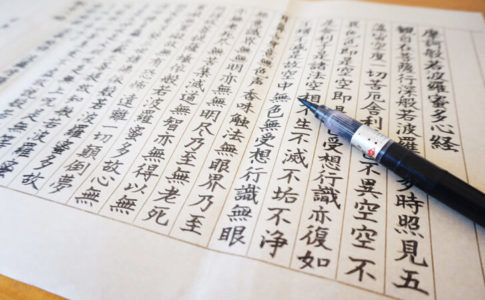 摩訶般若波羅蜜多心経
観自在菩薩行深般若波羅多時照見五
蘊皆空度一切苦厄舎利不異空空不
異色色即是空空即是受想行識亦復如
是舎利子是諸法空相不生不滅不垢不浄
不増不減是故空中無色無受想行識無眼
耳鼻舌身意無色声香味触法無眼界乃至
無意識界無無明亦無無明尽乃至無老死
亦無老死尽無苦集滅道無智亦無得以無
所得故菩提薩埵依般若波羅蜜多故心無
無罣礙故無有恐怖遠離一切顛倒夢
三世諸仏依般若波羅蜜多故
三菩提故知般若波羅蜜